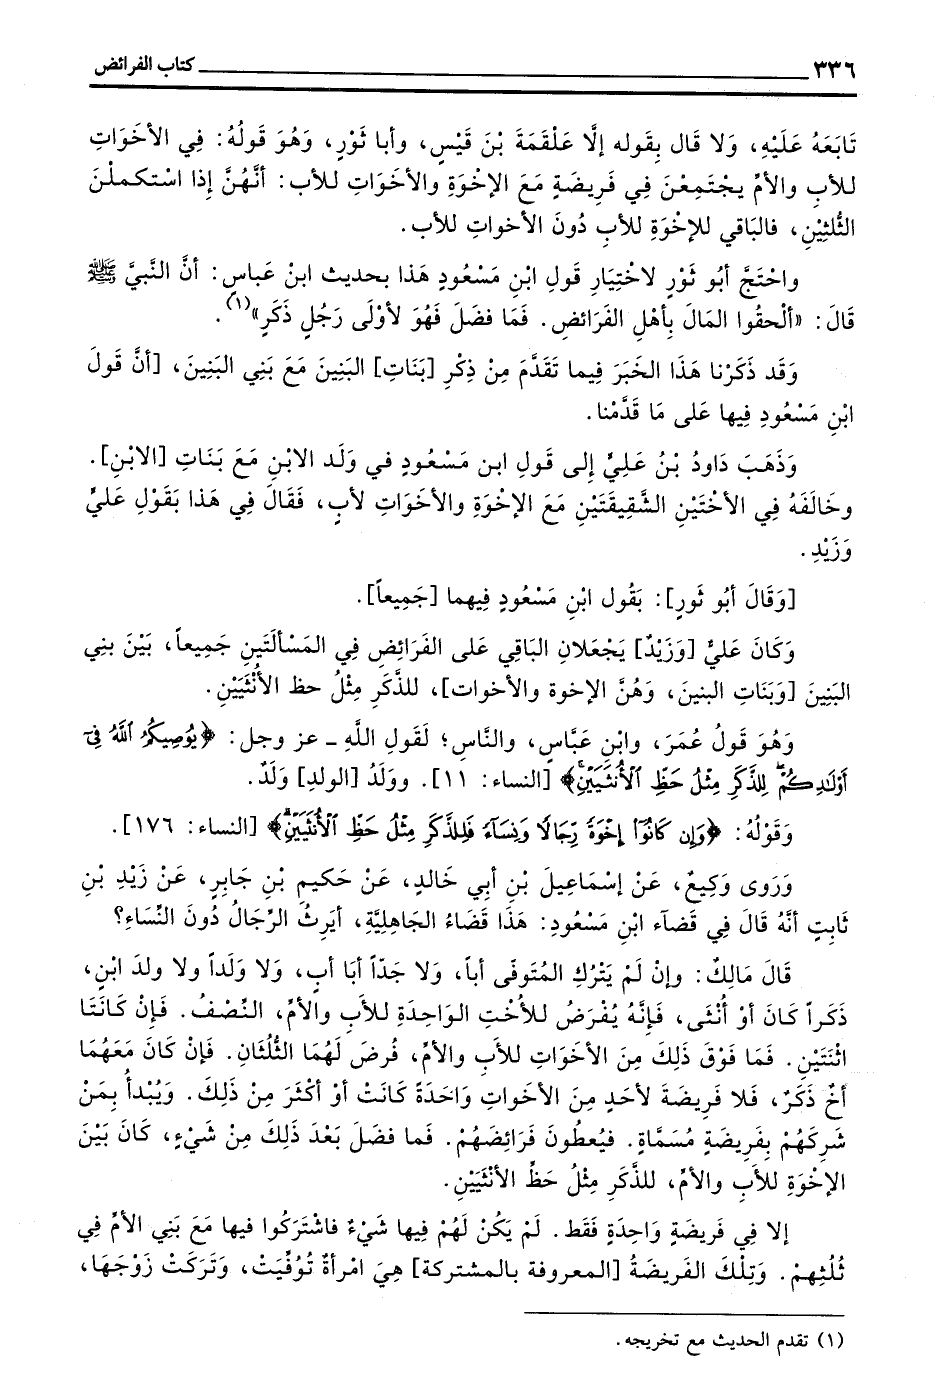 ٣٣٦ كتاب الفرائض
تَابَعَهُ عَلَيْهِ، وَلا قال بِقَوله إلَّا عَلْقَمَةَ بْنَ قَيْسٍ، وأبا ثَوْرٍ، وَهُوَ قَولُهُ: فِي الأخَوَاتِ
للأبِ والأمِّ يجْتَمِعْنَ فِي فَرِيضَةٍ مَعَ الإخْوَةِ والأخَوَاتِ للأب: أنَّهُنَّ إذا اسْتكملْنَ
الثُّلثِيْنِ، فالبَاقي للإخْوَةِ للأبِ دُونَ الأخواتِ للأب.
واحْتَجَّ أبُو ثَوْرٍ لاخْتِيَارِ قَولِ ابْنِ مَسْعُودٍ هَذا بحديث ابنْ عَباسٍ: أنَّ النَّبيَّ ﷺ
قَالَ: «ألْحقُوا المَالَ بأهْلِ الفَرَائضِ. فَمَا فضَلَ فَهُوَ لأوْلَى رَجُلٍ ذَكَرٍ»(١).
وَقَد ذَكَرْنا هَذَا الخَبَرَ فِيما تَقَدَّمَ مِنْ ذِكْرِ [بَنَاتِ] البَنِينَ مَعَ بَنِي البَنِينَ، [أنَّ قَولَ
ابْنِ مَسْعُودٍ فِيها عَلى مَا قَدَّمْنا.
وَذَهَبَ دَاودُ بْنُ عَلِيٍّ إلى قَولِ ابن مَسْعُودٍ في وَلَد الابْنِ مَعَ بَنَاتِ [الابْنِ].
وخَالَفَهُ فِي الأخْتَيْنِ الشَّقِيقَتَيْنِ مَعَ الإخْوَةِ والأخَوَاتِ لأبٍ، فَقَالَ فِي هَذا بَقَوْلِ عَليٍّ
وَزَيْدٍ.
[وَقَالَ أبُو ثَورٍ]: بَقُول ابْنِ مَسْعُودٍ فِيهما [جَمِيعاً].
وَكَانَ عَليٌّ [وَزَيْدٌ] يَجْعَلانِ البَاقِي عَلى الفَرَائِضِ فِي المَسْألَتَينِ جَمِيعاً، بَيْنَ بنِي
البَنِينَ [وَبَنَاتِ البنينَ، وَهُنَّ الإخوة والأخوات]، للذَّكَرِ مِثْلُ حظ الأُنْثَيَيْنِ.
وَهُوَ قَولُ عُمَرَ، وابنِ عَبَّاسٍ، والنَّاسِ؛ لَقولِ اللَّهِ ـ عز وجل: ﴿يُوصِيكُمُ ٱللَّهُ فِيٓ
أَوْلَٰدِكُمْۖ لِلذَّكَرِ مِثْلُ حَظِّ ٱلْأُنثَيَيْنِۚ﴾ [النساء: ١١]. وولَدُ [الولدِ] وَلَدٌ.
وَقَوْلُهُ: ﴿وَإِن كَانُوٓاْ إِخْوَةً رِّجَالًا وَنِسَآءً فَلِلذَّكَرِ مِثْلُ حَظِّ ٱلْأُنثَيَيْنِۗ﴾ [النساء: ١٧٦].
وَرَوى وَكِيعٌ، عَنْ إسْمَاعِيلَ بْنِ أبي خَالدٍ، عَنْ حَكيمِ بْنِ جَابرٍ، عَنْ زَيْدِ بْنِ
ثَابتٍ أنَّهُ قَالَ فِي قضَآء ابْنِ مَسْعُودٍ: هَذَا قَضَاءُ الجَاهِليَّةِ، أيَرِثُ الرِّجَالُ دُونَ النِّسَاءِ؟
قَالَ مَالِكٌ: وإنْ لَمْ يَتْرُكِ المُتَوفَى أباً، وَلا جَدّاً أبَا أبٍ، وَلا وَلَداً ولا ولدَ ابْنٍ،
ذَكَراً كَانَ أوْ أُنْثَى، فَإنَّهُ يُفْرَضُ للأُخْتِ الوَاحِدَةِ للأَبِ والأمِّ، النِّصْفُ. فَإنْ كَانَتَا
اثْنَتَيْنِ. فَمَا فَوْقَ ذَلِكَ مِنَ الأخَوَاتِ للأبِ والأمِّ، فُرِضَ لَهُمَا الثُّلُثَانِ. فَإنْ كَانَ مَعَهُمَا
أخٌ ذَكَرٌ، فَلا فَرِيضَةَ لأحَدٍ مِنَ الأخواتِ وَاحَدَةً كَانَتْ أوْ أكْثَرَ مِنْ ذَلِكَ. وَيُبْدأُ بِمَنْ
شَرِكَهُمْ بِفَرِيضَةٍ مُسَمَّاةٍ. فيُعطُونَ فَرَائِضَهُمْ. فَما فضَلَ بَعْدَ ذَلِكَ مِنْ شَيْءٍ، كَانَ بَيْنَ
الإخْوَةِ للأبِ والأمِّ، للذَّكَرِ مِثْلُ حَظِّ الأنْثَيَيْنِ.
إلا فِي فَرِيضَةٍ وَاحِدَةٍ فَقَط. لَمْ يَكُنْ لَهُمْ فِيها شَيْءٌ فاشْتَرَكُوا فيها مَعَ بَنِي الأمِّ فِي
ثُلُثِهِمْ. وَتِلْكَ الفَرِيضَةُ [المعروفة بالمشتركة] هِيَ امْرأةٌ تُوُفِّيَتْ، وَتَرَكَتْ زَوْجَهَا،
(١) تقدم الحديث مع تخريجه.